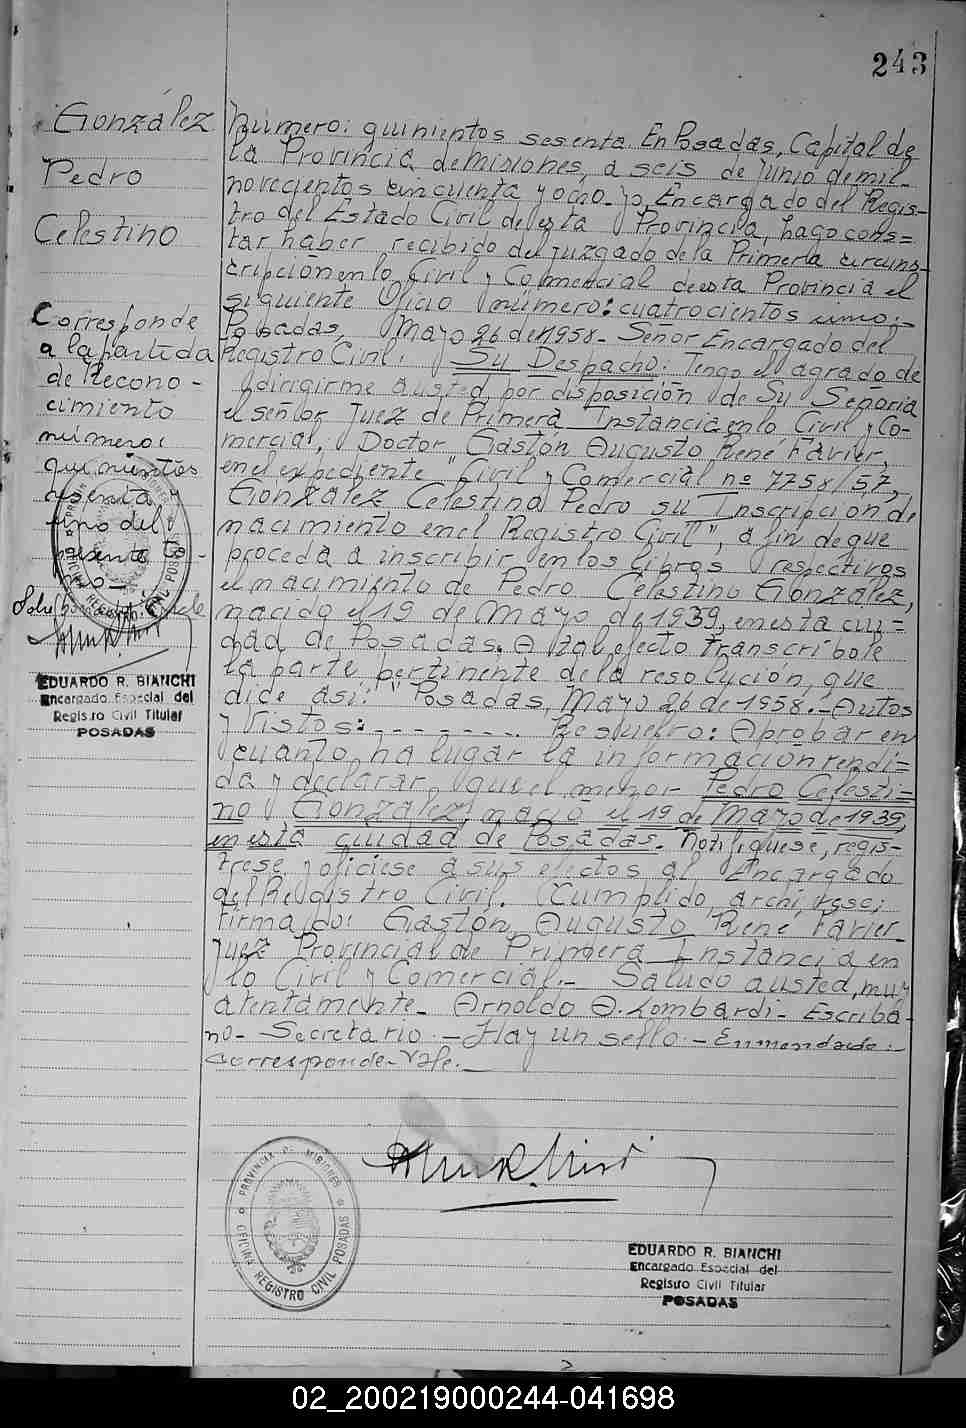 243
González
Pedro
Celestino
Corresponde
a la partida
de Recono-
cimiento
número:
quinientos
sesenta y
uno del
presente to-
mo-
EDUARDO R. BIANCHI
Encargado Especial del
Registro Civil Titular
POSADAS
Número: quinientos sesenta. En Posadas, Capital de
la Provincia de Misiones, a seis de Junio de mil-
novecientos cincuenta y ocho- yo, Encargado del Regis-
tro del Estado Civil de esta Provincia, hago cons=
tar haber recibido del juzgado de la Primera circuns-
cripción en lo Civil y Comercial de esta Provincia el
siguiente Oficio número: cuatrocientos uno:-
Posadas, Mayo 26 de 1958. Señor Encargado del
Registro Civil. Su Despacho. Tengo el agrado de
dirigirme a usted por disposición de Su Señoria
el señor Juez de Primera Instancia en lo Civil y Co-
mercial, Doctor Gastón Augusto Rene Favier,
en el expediente "Civil y Comercial nº 7758/57,
González Celestino Pedro su Inscripcion de
nacimiento en el Registro Civil", a fin de que
proceda a inscribir en los libros respectivos
el nacimiento de Pedro Celestino González,
nacido el 19 de Mayo de 1939, en esta ciu=
dad de Posadas. A tal efecto transcribole
la parte pertinente de la resolución, que
dice asi: "Posadas, Mayo 26 de 1958.-Autos
y Vistos:------- Resuelvo: Aprobar en
cuanto ha lugar la información rendi=
da y declarar que el menor Pedro Celesti=
no González, nació el 19 de Mayo de 1939,
en esta ciudad de Posadas. Notifiquese, regis-
trese y oficiese a sus efectos al Encargado
del Registro Civil. Cumplido, archivese:
Firmado: Gastón Augusto René Favier-
Juez Provincial de Primera Instancia en
lo Civil y Comercial.- Saludo a usted, muy
atentamente- Arnoldo A. Lombardi- Escriba-
no- Secretario.- Hay un sello.- Enmendado:
Corresponde-Vale.-
PROVINCIA DE MISIONES
OFICINA REGISTRO CIVIL POSADAS
EDUARDO R. BIANCHI
Encargado Especial del
Registro Civil Titular
POSADAS
02_200219000244-041698